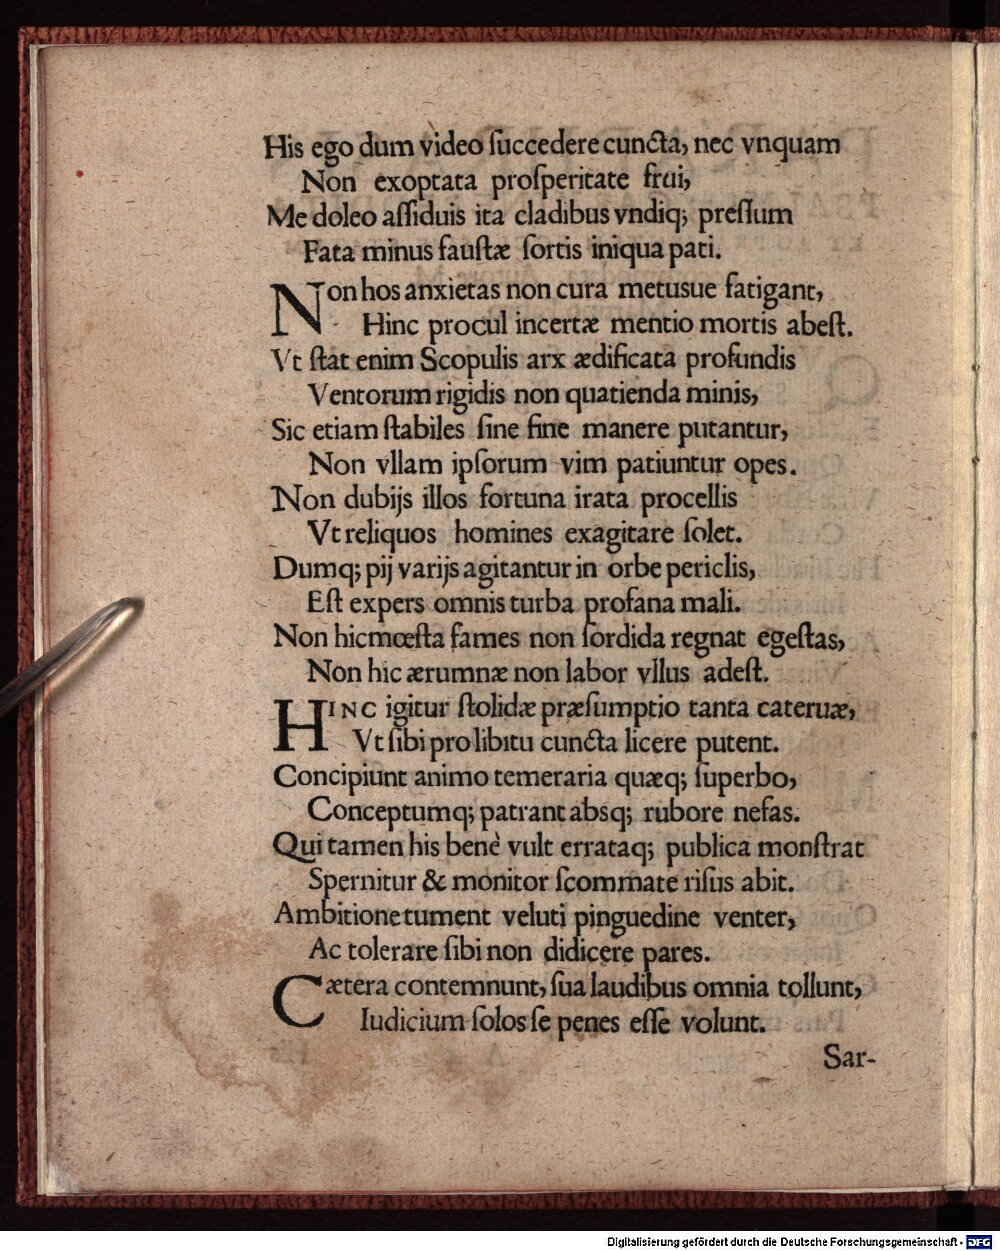 His ego dum video ſuccedere cuncta, nec vnquam
Non exoptata proſperitate frui,
Me doleo aſſiduis ita cladibus vndiq; preſſum
Fata minus fauſtæ ſortis iniqua pati.
Non hos anxietas non cura metusue fatigant,
Hinc procul incertæ mentio mortis abeſt.
Vt ſtat enim Scopulis arx ædificata profundis
Ventorum rigidis non quatienda minis,
Sic etiam ſtabiles ſine fine manere putantur,
Non vllam ipſorum vim patiuntur opes.
Non dubijs illos fortuna irata procellis
Vt reliquos homines exagitare ſolet.
Dumq; pij varijs agitantur in orbe periclis,
Eſt expers omnis turba profana mali.
Non hic mœſta fames non ſordida regnat egeſtas,
Non hic ærumnæ non labor vllus adeſt.
HINC igitur ſtolidæ præſumptio tanta cateruæ,
Vt ſibi pro libitu cuncta licere putent.
Concipiunt animo temeraria quæq; ſuperbo,
Conceptumq; patrant absq; rubore nefas.
Qui tamen his benè vult errataq; publica monſtrat
Spernitur & monitor ſcommate riſus abit.
Ambitione tument veluti pinguedine venter,
Ac tolerare ſibi non didicere pares.
Cætera contemnunt, ſua laudibus omnia tollunt,
Iudicium ſolos ſe penes eſſe volunt.
Sar-
Digitalisierung gefördert durch die Deutsche Forschungsgemeinschaft - DFG